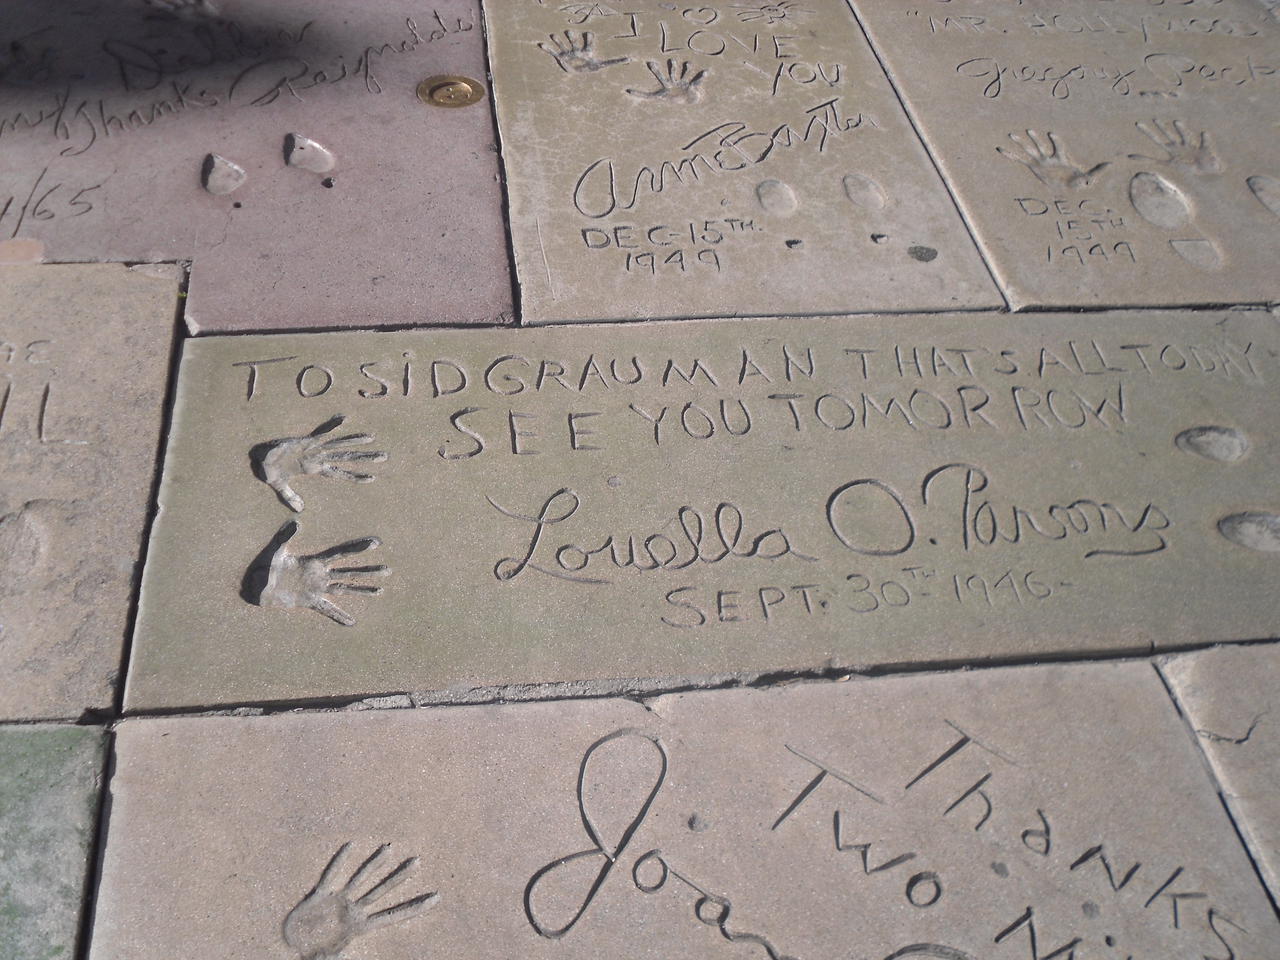 Debbie Reynolds
Thanks
/65
I LOVE
YOU
Anne Baxter
DEC-15TH.
1949
"MR. HOLLYWOOD"
Gregory Peck
DEC.
15TH
1949
TO SID GRAUMAN THAT'S ALL TODAY
SEE YOU TOMORROW
Louella O. Parsons
SEPT. 30TH 1946-
Joan
Thanks
Two